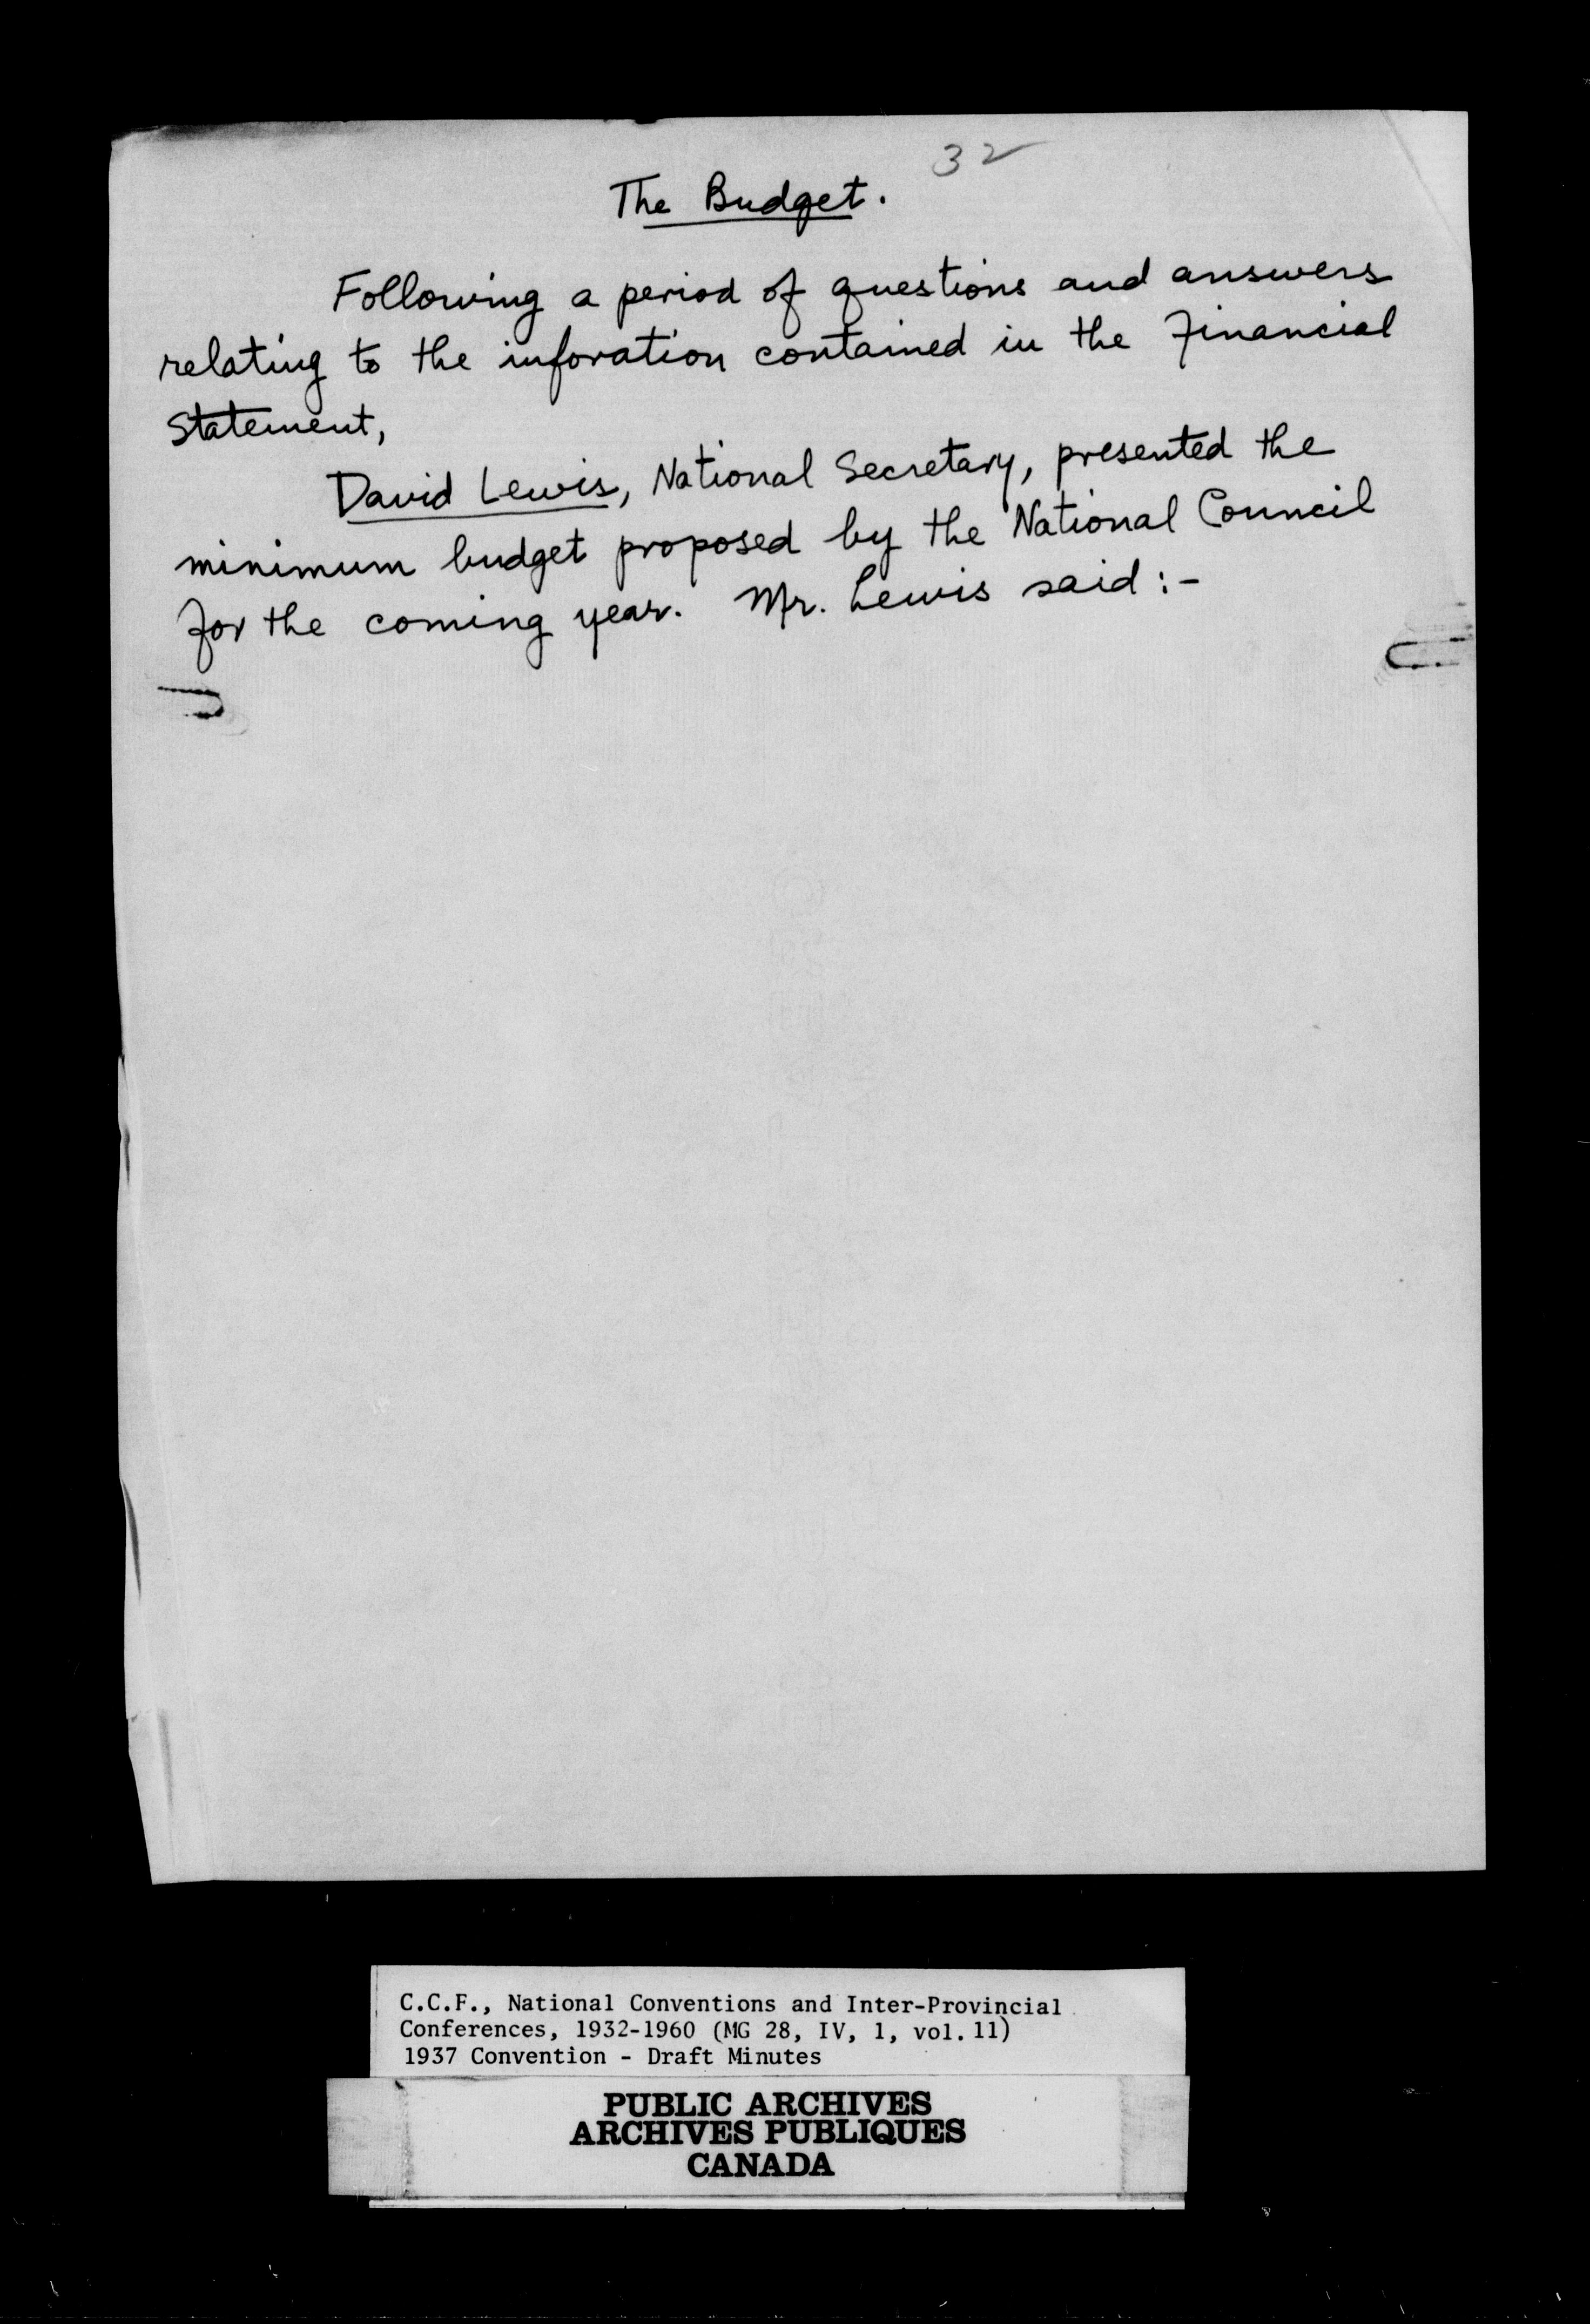 32
The Budget.
Following a period of questions and answers
relating to the inforation contained in the Financial
Statement,
David Lewis, National Secretary, presented the
minimum budget proposed by the National Council
for the coming year. Mr. Lewis said :-
C.C.F., National Conventions and Inter-Provincial
Conferences, 1932-1960 (MG 28, IV, 1, vol. 11)
1937 Convention - Draft Minutes
PUBLIC ARCHIVES
ARCHIVES PUBLIQUES
CANADA